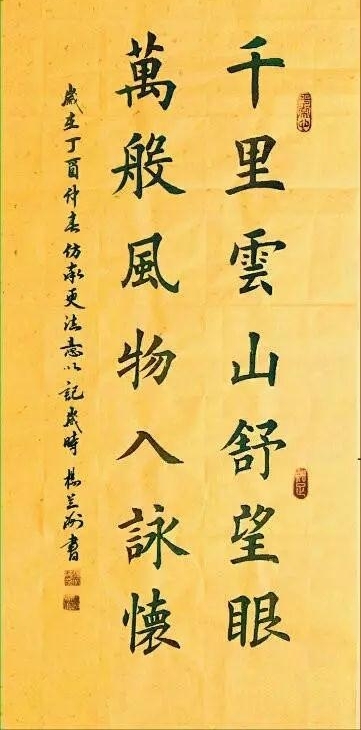 千里雲山舒望眼
萬般風物入詠懷
歲在丁酉仲春仿率更法意以記歲時 楊兰洲書